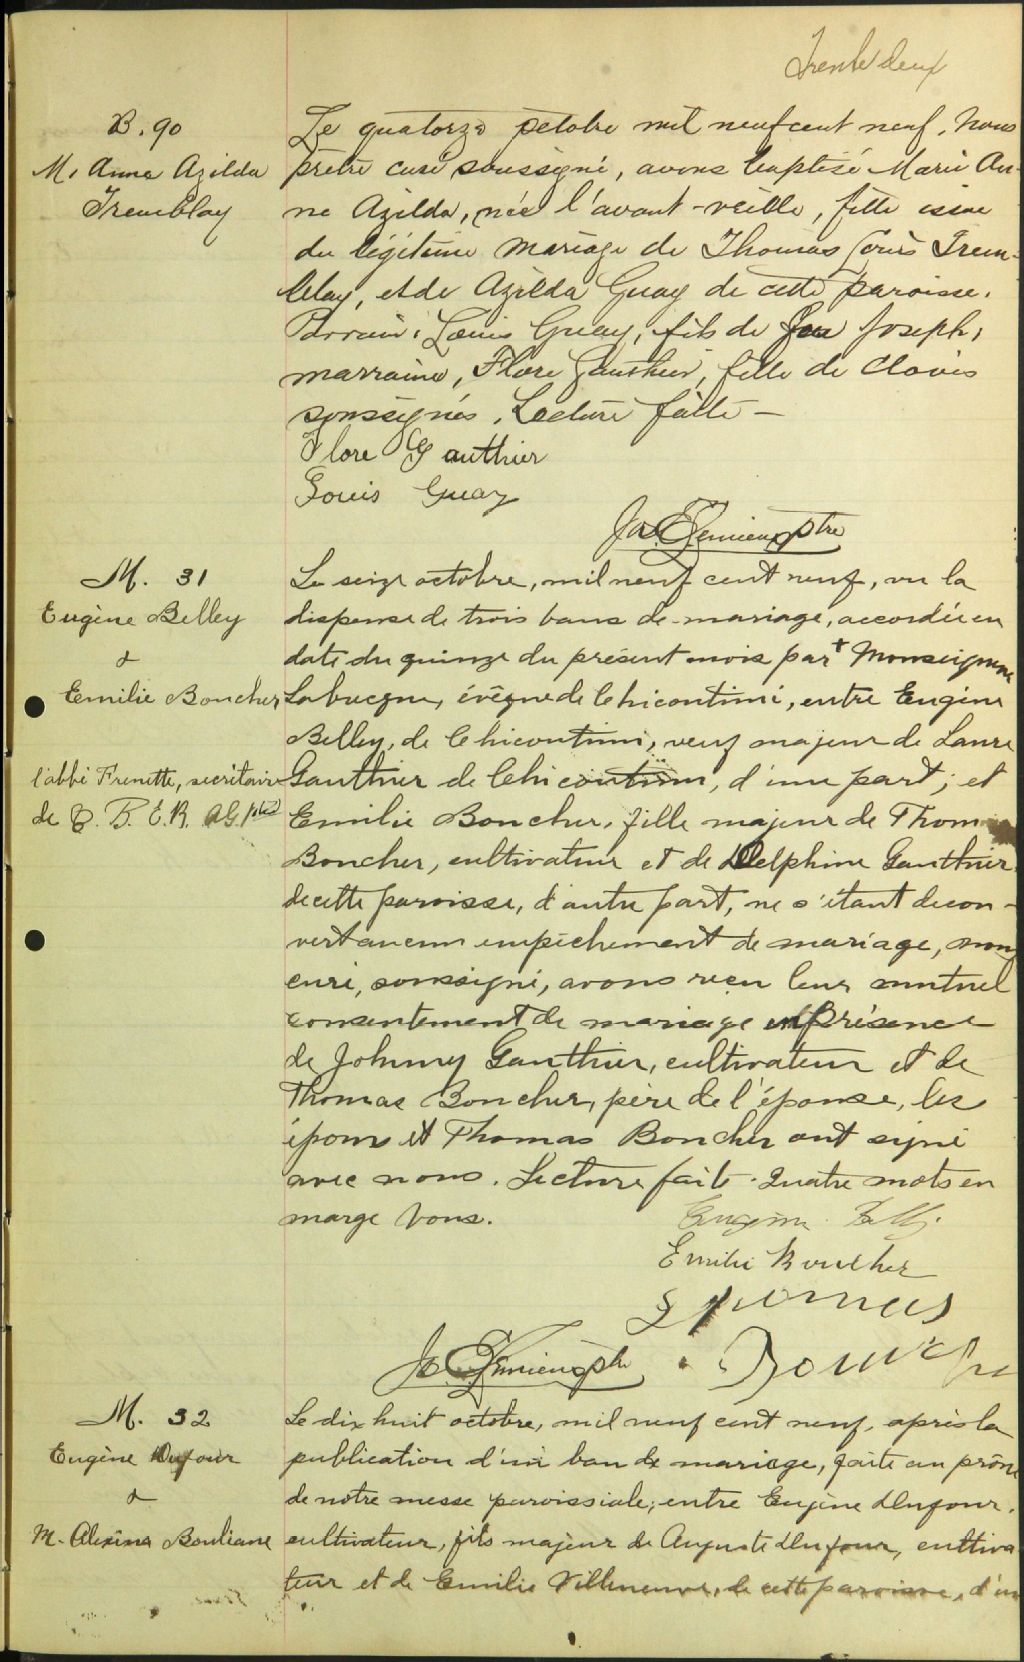 Trente deux
B. 90
M. Anna Azilda
Tremblay
Le quatorze octobre mil neuf cent neuf, Nous
prêtre curé soussigné, avons baptisé Marie An-
ne Azilda, née l'avant-veille, fille issue
du légitime mariage de Thomas Louis Trem-
blay, et de Azilda Guay de cette paroisse.
Parrain, Louis Guay, fils de feu Joseph,
marraine, Flore Gauthier, fille de Clovis
soussignés. Lecture faite —
Flore Gauthier
Louis Guay
ptre
M. 31
Eugène Belley
&
Emilie Boucher
l'abbé Frenette, secrétaire
de
Le seize octobre, mil neuf cent neuf, vu la
dispense de trois bans de mariage, accordée en
date du quinze du présent mois par + Monseigneur
Labrecque, évêque de Chicoutimi, entre Eugène
Belley, de Chicoutimi, veuf majeur de Laure
Gauthier de Chicoutimi, d'une part; et
Emilie Boucher, fille majeur de Thomas
Boucher, cultivateur et de Delphine Gauthier
de cette paroisse, d'autre part, ne s'étant décou-
vert aucun empêchement de mariage, nous
curé, soussigné, avons reçu leur mutuel
consentement de mariage en présence
de Johnny Gauthier, cultivateur et de
Thomas Boucher, père de l'épouse, les
époux et Thomas Boucher ont signé
avec nous. Lecture faite. Quatre mots en
marge bons.
Eugène Belley
Emilie Boucher
Thomas
Boucher
ptre
M. 32
Eugène Dufour
&
M. Alexina Bouliane
Le dix huit octobre, mil neuf cent neuf, après la
publication d'un ban de mariage, faite au prône
de notre messe paroissiale, entre Eugène Dufour,
cultivateur, fils majeur de Auguste Dufour, cultiva-
teur et de Emilie Villeneuve, de cette paroisse, d'un